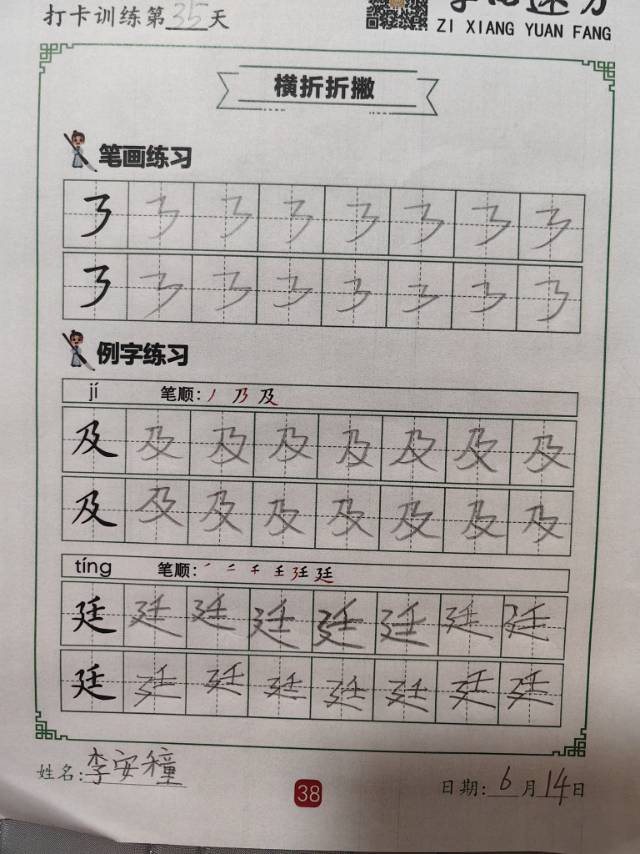 打卡训练第35天
ZI XIANG YUAN FANG
横折折撇
笔画练习
例字练习
jí 笔顺: 丿 乃 及
及 及 及 及 及 及 及 及
及 及 及 及 及 及 及 及
tíng 笔顺: 廷
廷 廷 廷 廷 廷 廷 廷 廷
廷 廷 廷 廷 廷 廷 廷 廷
姓名: 李安穜
38
日期: 6月14日